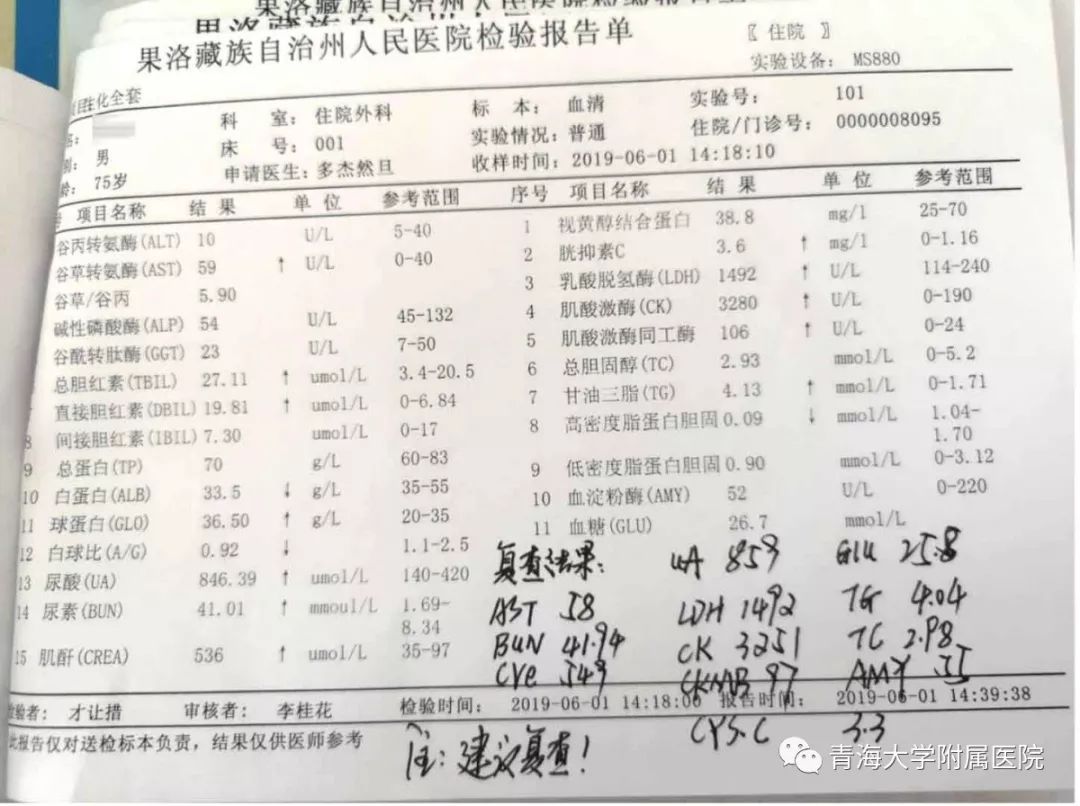 果洛藏族自治州人民医院检验报告单
〖 住院 〗
实验设备: MS880
生化全套
科 室: 住院外科 标 本: 血清 实验号: 101
男 床 号: 001 实验情况: 普通 住院/门诊号: 0000008095
75岁 申请医生: 多杰然旦 收样时间: 2019-06-01 14:18:10
项目名称 结 果 单 位 参考范围 序号 项目名称 结 果 单 位 参考范围
谷丙转氨酶(ALT) 10 U/L 5-40 1 视黄醇结合蛋白 38.8 mg/l 25-70
谷草转氨酶(AST) 59 ↑ U/L 0-40 2 胱抑素C 3.6 ↑ mg/l 0-1.16
谷草/谷丙 5.90 3 乳酸脱氢酶(LDH) 1492 ↑ U/L 114-240
碱性磷酸酶(ALP) 54 U/L 45-132 4 肌酸激酶(CK) 3280 ↑ U/L 0-190
谷酰转肽酶(GGT) 23 U/L 7-50 5 肌酸激酶同工酶 106 ↑ U/L 0-24
总胆红素(TBIL) 27.11 ↑ umol/L 3.4-20.5 6 总胆固醇(TC) 2.93 mmol/L 0-5.2
直接胆红素(DBIL) 19.81 ↑ umol/L 0-6.84 7 甘油三脂(TG) 4.13 ↑ mmol/L 0-1.71
8 间接胆红素(IBIL) 7.30 umol/L 0-17 8 高密度脂蛋白胆固 0.09 ↓ mmol/L 1.04-1.70
9 总蛋白(TP) 70 g/L 60-83 9 低密度脂蛋白胆固 0.90 mmol/L 0-3.12
10 白蛋白(ALB) 33.5 ↓ g/L 35-55 10 血淀粉酶(AMY) 52 U/L 0-220
11 球蛋白(GLO) 36.50 ↑ g/L 20-35 11 血糖(GLU) 26.7 mmol/L
12 白球比(A/G) 0.92 ↓ 1.1-2.5
13 尿酸(UA) 846.39 ↑ umol/L 140-420
14 尿素(BUN) 41.01 ↑ mmoul/L 1.69-8.34
15 肌酐(CREA) 536 ↑ umol/L 35-97
复查结果: UA 859 Glu 25.8
AST 58 LDH 1492 TG 4.04
BUN 41.94 CK 3251 TC 2.98
Cre 549 CKMB 97 AMY 55
CYS.C 3.3
检验者: 才让措 审核者: 李桂花 检验时间: 2019-06-01 14:18:00 报告时间: 2019-06-01 14:39:38
此报告仅对送检标本负责，结果仅供医师参考
注: 建议复查!
青海大学附属医院